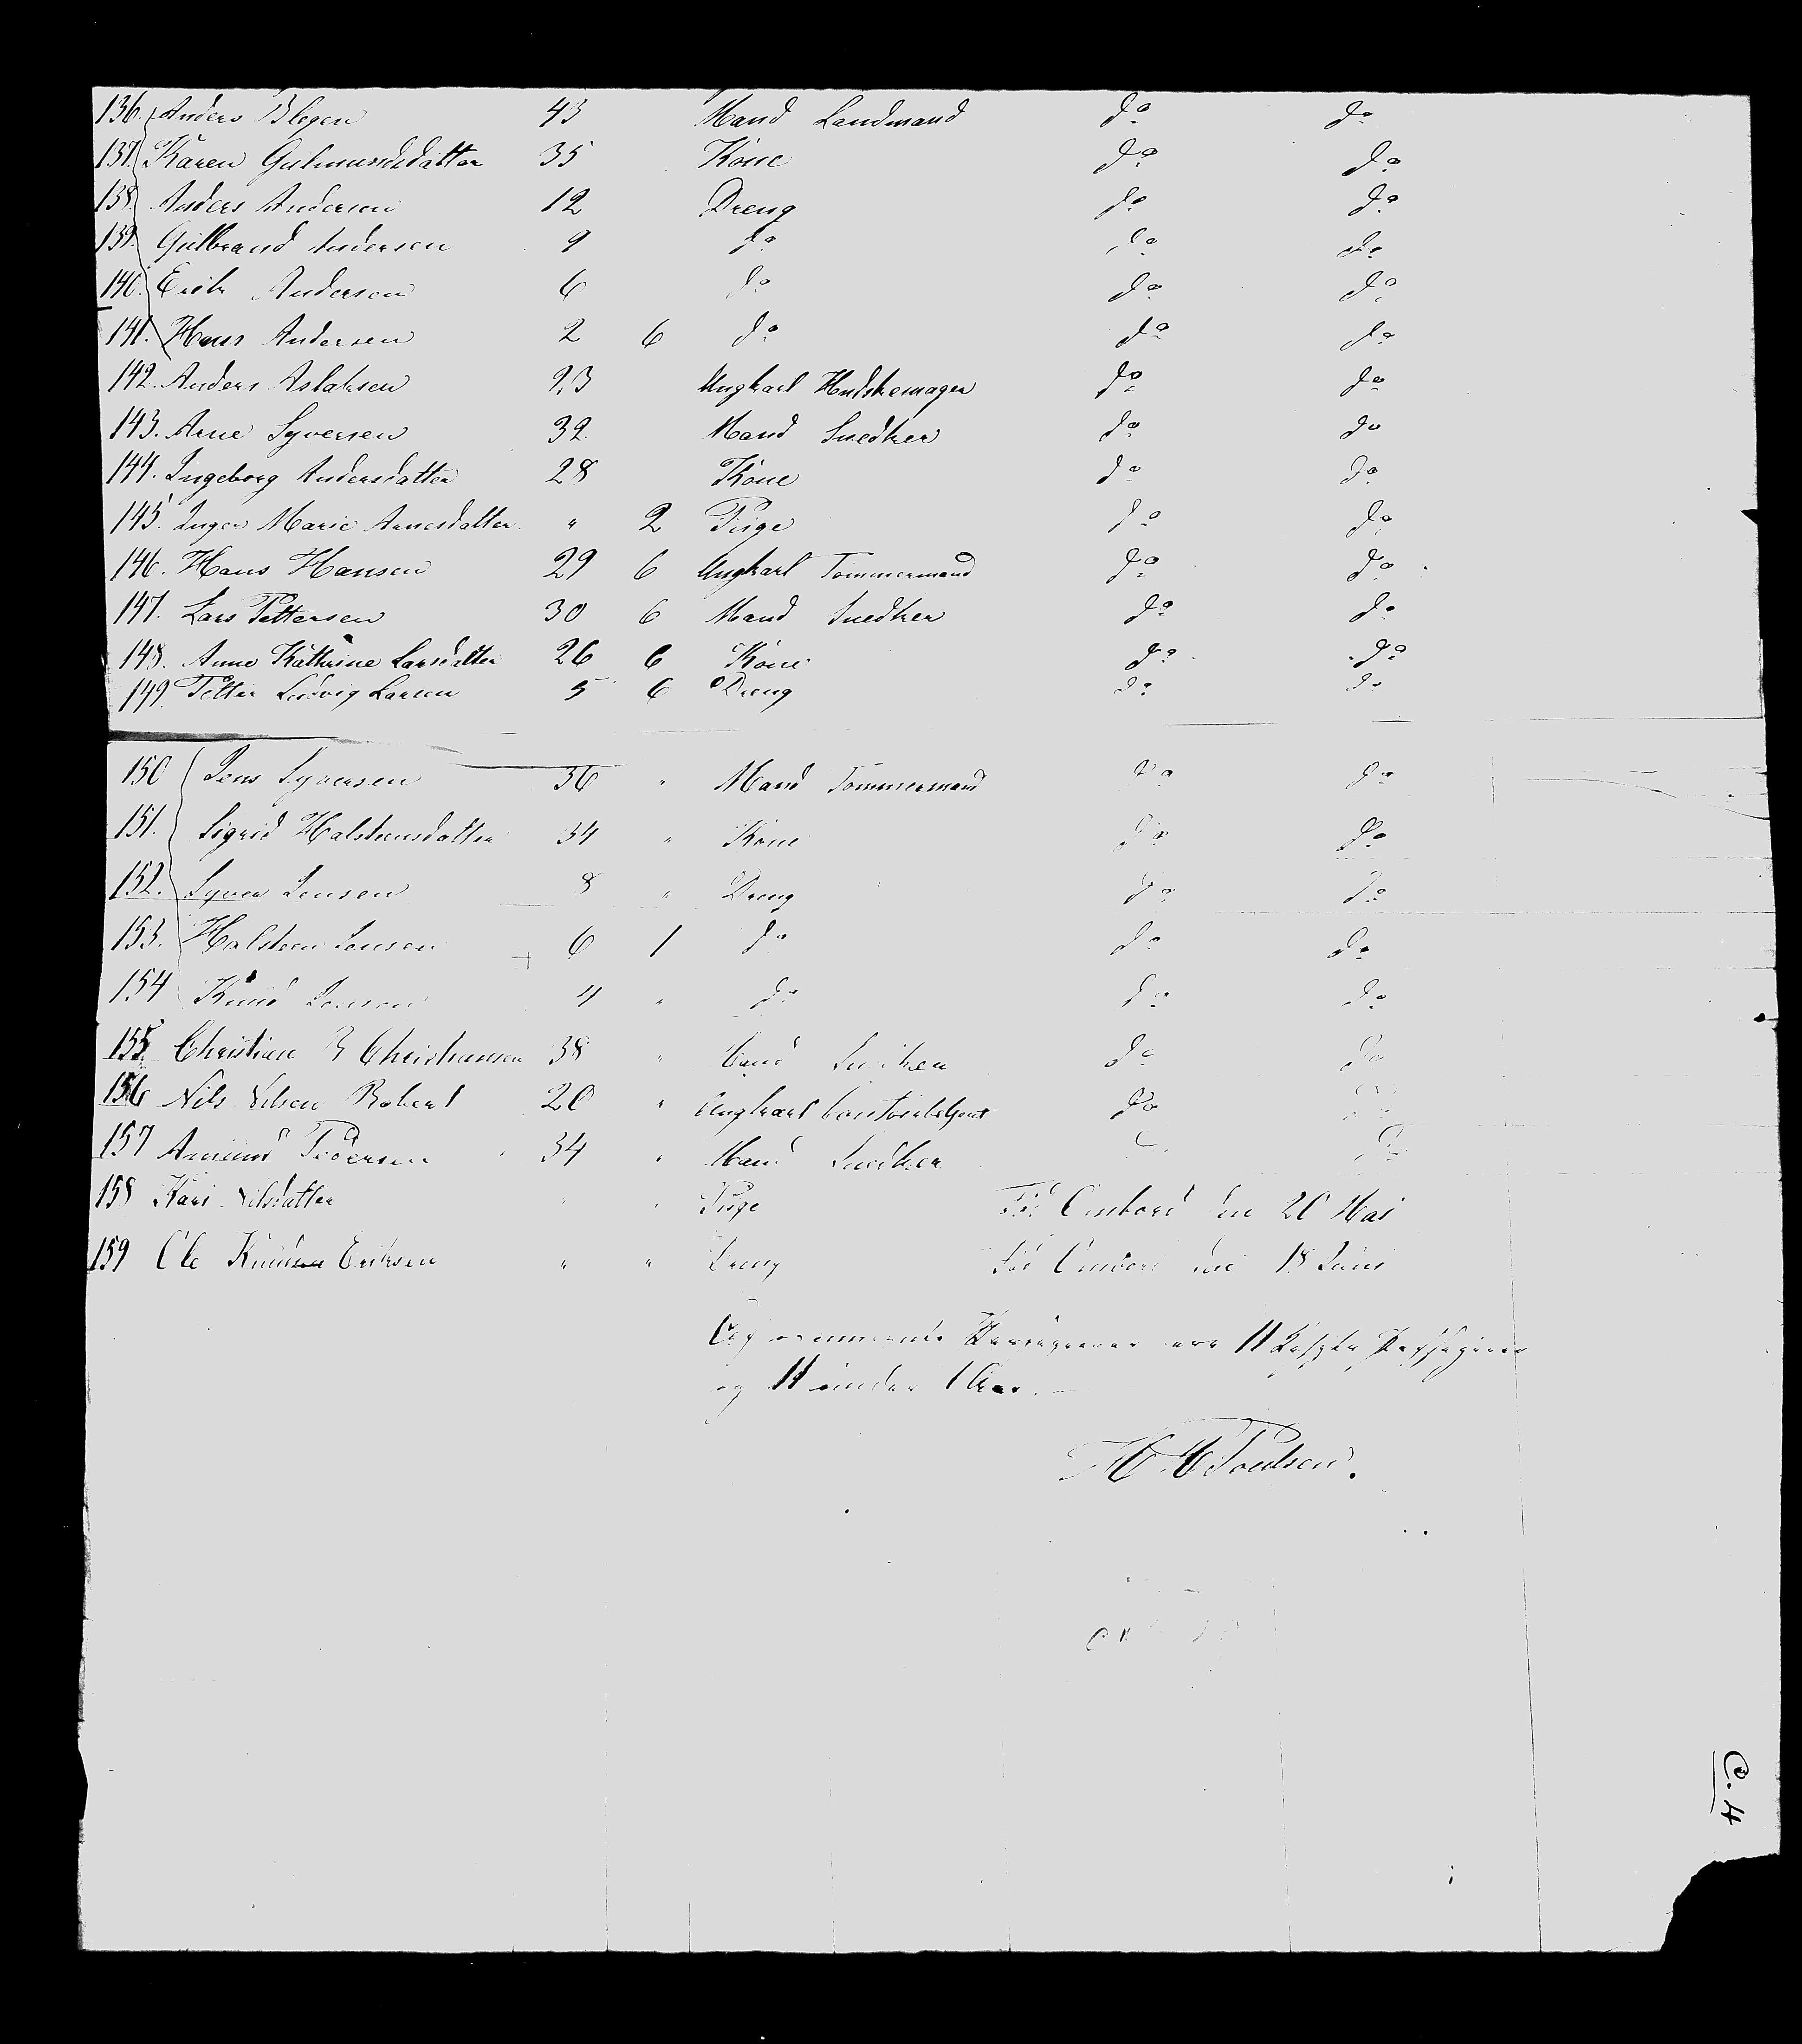 136. Anders Blegen 43 Mand Landmand do do
137. Karen Gulmundsdatter 35 Kone do do
138. Anders Andersen 12 Dreng do do
139. Gulbrand Andersen 9 do do do
140. Erik Andersen 6 do do do
141. Hans Andersen 2 6 do do do
142. Anders Aslaksen 23 Ungkarl Hndskemager do do
143. Arne Syversen 32 Mand Snedker do do
144. Ingeborg Andersdatter 28 Kone do do
145. Inger Marie Arnesdatter " 2 Pige do do
146. Hans Hansen 29 6 Ungkarl Tommermand do do
147. Lars Pettersen 30 6 Mand Snedker do do
148. Anne Kathrine Larsdatter 26 6 Kone do do
149. Petter Ludvig Larsen 5 6 Dreng do do
150 Jens Syversen 36 " Mand Tommermand do do
151. Sigrid Halsteensdatter 34 " Kone do do
152. Syver Jensen 8 " Dreng do do
153. Halsteen Jensen 6 1 do do do
154 Knud Jensen 4 " do do do
155 Christian B Christiansen 38 " Mand Snedker do do
156 Nils Nilsen Robert 20 " Ungkarl Contoirbetjent do do
157 Amund Pedersen 34 " Mand Snedker do
158 Kari Nilsdatter " " Pige Född Ombord den 20 Mai
159 Ole Knudsen Eriksen " " Dreng Född Ombord den 18 Juni
11 Passagerer
og 11 under 1 Aar.
H. H. Poulsen.
C. 4